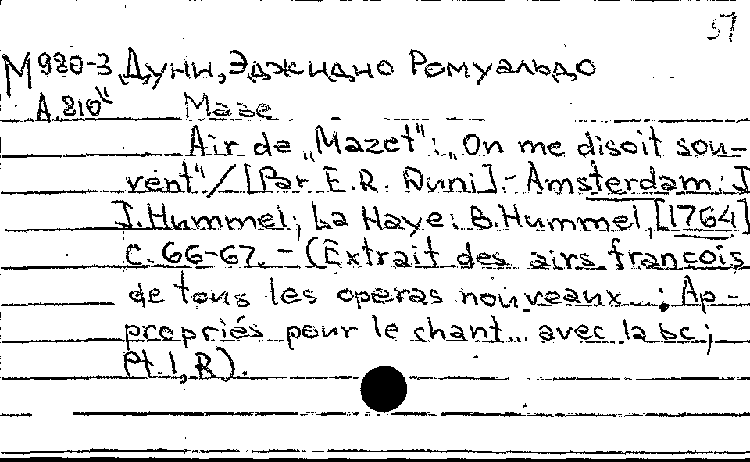 57
М 980-3 Дуни, Эджидио Ромуальдо
А.210" Мазе
Air de „Mazet": „On me disoit sou-
vent"/[Par E.R. Duni].- Amsterdam: J
J.Hummel; La Haye: B.Hummel, [1764]
С. 66-67. - (Extrait des airs francois
de tous les operas nouveaux...; Ap-
propriés pour le chant... avec la bc;
Pt. 1, R).